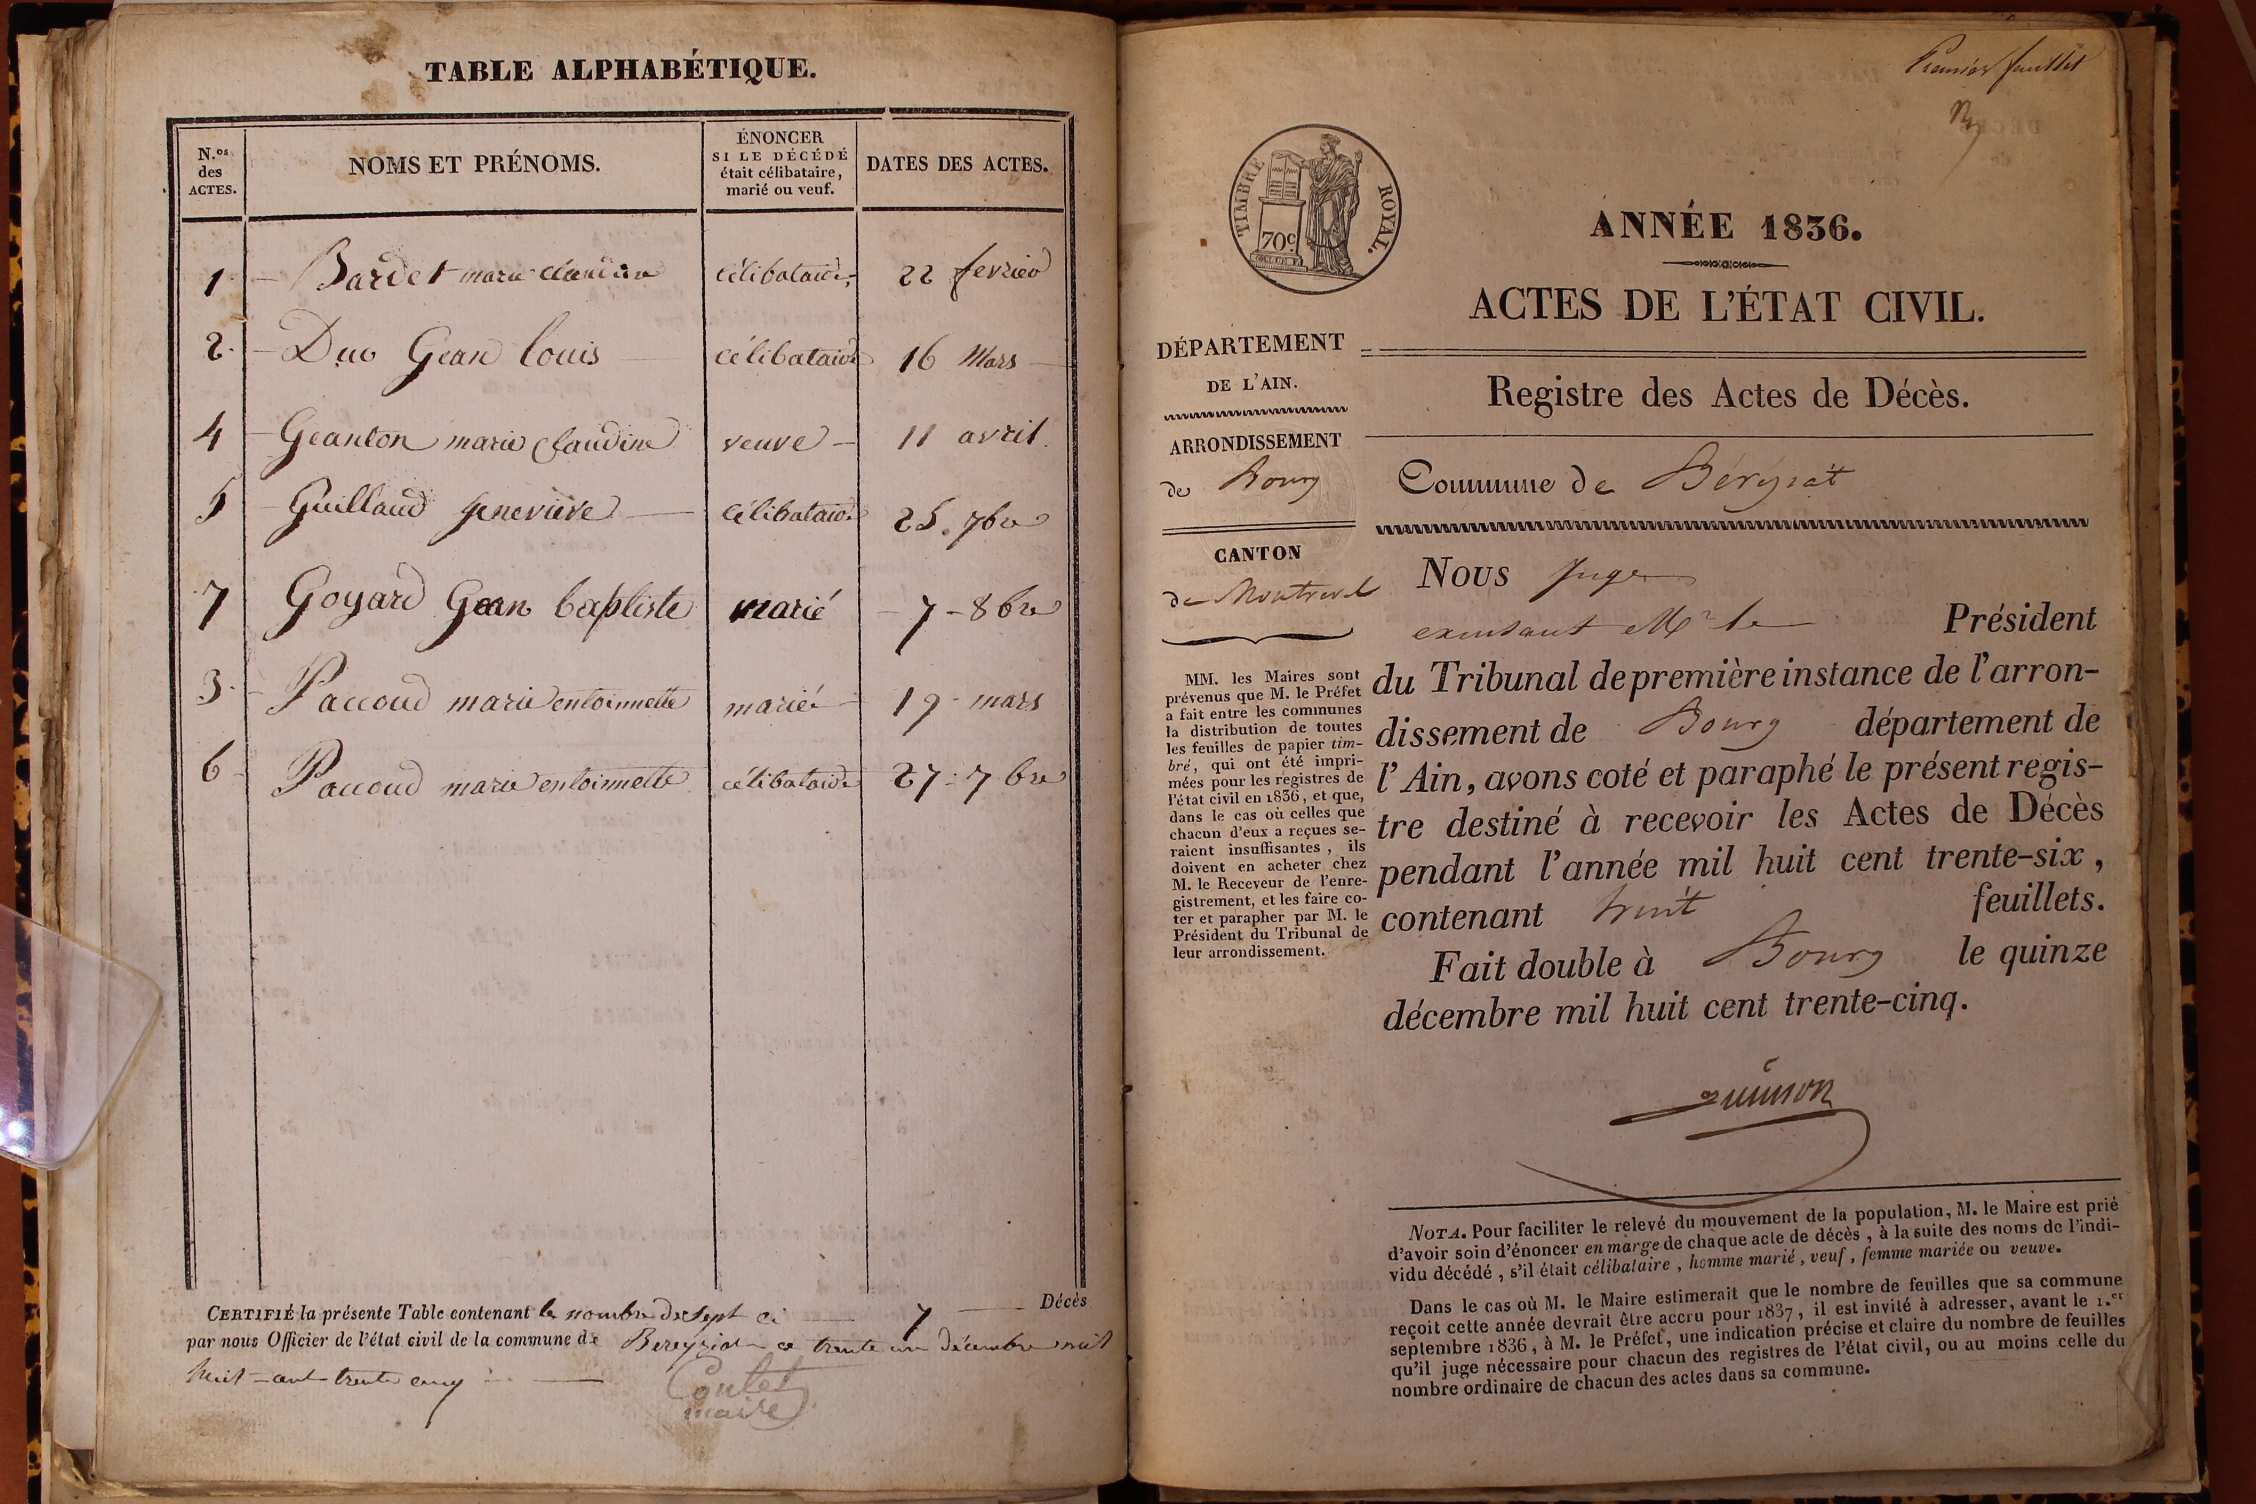 TABLE ALPHABÉTIQUE.
N.os des ACTES.
NOMS ET PRÉNOMS.
ÉNONCER
SI LE DÉCÉDÉ
était célibataire,
marié ou veuf.
DATES DES ACTES.
1 - Bardet marie claudine célibataire 22 fevrier
2. - Duc Gean Louis célibataire 16 Mars
4 - Geanton marie Claudine veuve - 11 avril
5 - Guillaud genevieve célibataire 25. 7bre
7 Goyard Gean baptiste marié - 7 - 8bre
3. - Paccoud marie entoinnette marieé 19 - mars
6 - Paccoud marie entoinnette célibataire 27 - 7bre
CERTIFIÉ la présente Table contenant le nombre de Sept ci 7 Décès
par nous Officier de l'état civil de la commune de Bereyziat ce trente un décembre mil
huit - cent trente cinq
Contet
maire
Premier feuillet
TIMBRE ROYAL.
70c.
ANNÉE 1836.
ACTES DE L'ÉTAT CIVIL.
DÉPARTEMENT
DE L'AIN.
Registre des Actes de Décès.
ARRONDISSEMENT
de Bourg
Commune de Béréziat
CANTON
de Montrevel
MM. les Maires sont
prévenus que M. le Préfet
a fait entre les communes
la distribution de toutes
les feuilles de papier tim-
bré, qui ont été impri-
mées pour les registres de
l'état civil en 1836, et que,
dans le cas où celles que
chacun d'eux a reçues se-
raient insuffisantes, ils
doivent en acheter chez
M. le Receveur de l'enre-
gistrement, et les faire co-
ter et parapher par M. le
Président du Tribunal de
leur arrondissement.
Nous Juge
excusant Mr le Président
du Tribunal de première instance de l'arron-
dissement de Bourg département de
l'Ain, avons coté et paraphé le présent regis-
tre destiné à recevoir les Actes de Décès
pendant l'année mil huit cent trente-six,
contenant feuillets.
Fait double à Bourg le quinze
décembre mil huit cent trente-cinq.
NOTA. Pour faciliter le relevé du mouvement de la population, M. le Maire est prié
d'avoir soin d'énoncer en marge de chaque acte de décès, à la suite des noms de l'indi-
vidu décédé, s'il était célibataire, homme marié, veuf, femme mariée ou veuve.
Dans le cas où M. le Maire estimerait que le nombre de feuilles que sa commune
reçoit cette année devrait être accru pour 1837, il est invité à adresser, avant le 1.er
septembre 1836, à M. le Préfet, une indication précise et claire du nombre de feuilles
qu'il juge nécessaire pour chacun des registres de l'état civil, ou au moins celle du
nombre ordinaire de chacun des actes dans sa commune.